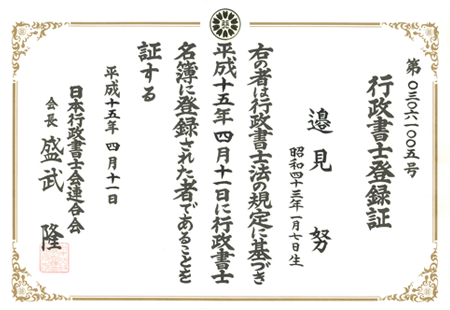 第〇三〇六一〇〇五号
行政書士登録証
邉見 努
昭和四十三年一月七日生
右の者は行政書士法の規定に基づき
平成十五年 四月十一日に行政書士
名簿に登録された者であることを
証する
平成十五年 四月十一日
日本行政書士会連合会
会長 盛武 隆